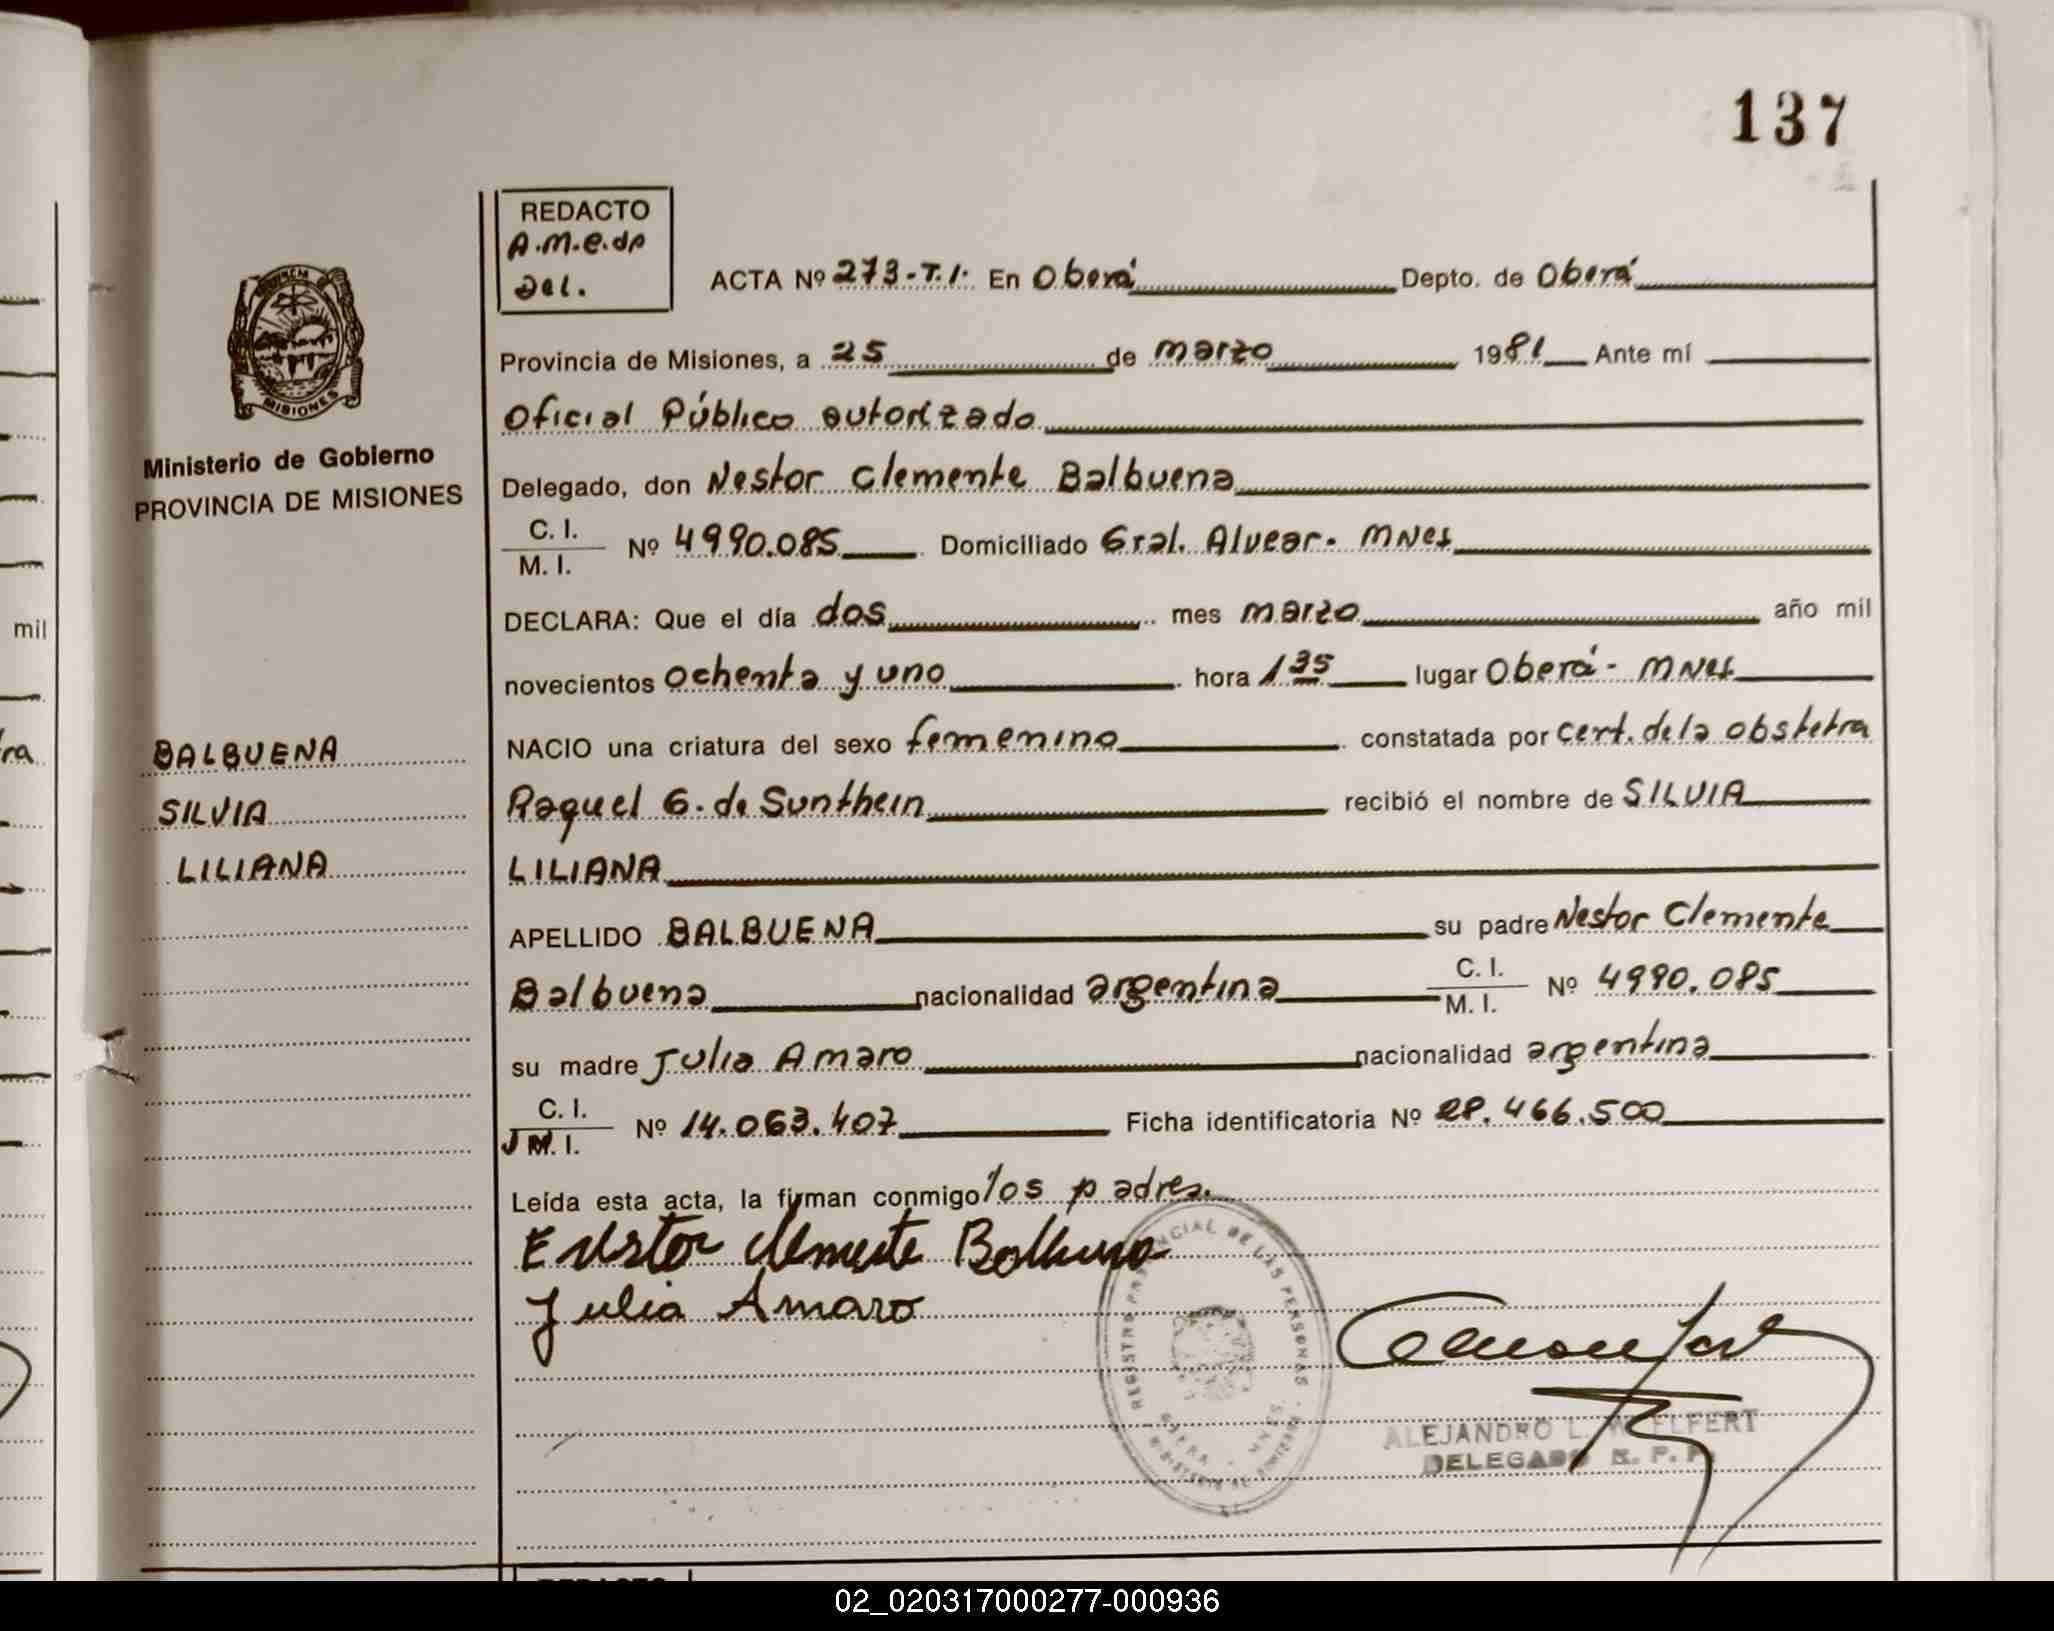 137
REDACTO
A.M.e.dp
Del.
ACTA Nº 273-T.I. En Oberá Depto. de Oberá
Provincia de Misiones, a 25 de marzo 1981 Ante mí
Oficial Público autorizado
Ministerio de Gobierno
PROVINCIA DE MISIONES
Delegado, don Nestor Clemente Balbuena
C. I.
M. I. Nº 4990.085 Domiciliado Gral. Alvear. MNes
DECLARA: Que el día dos mes marzo año mil
novecientos ochenta y uno hora 1 35 lugar Oberá - MNes
NACIO una criatura del sexo femenino constatada por cert. de la obstetra
Raquel G. de Sunthein recibió el nombre de SILVIA
LILIANA
BALBUENA
SILVIA
LILIANA
APELLIDO BALBUENA su padre Nestor Clemente
Balbuena nacionalidad argentina C. I.
M. I. Nº 4990.085
su madre Julia Amaro nacionalidad argentina
C. I.
M. I. Nº 14.063.407 Ficha identificatoria Nº 28.466.500
Leída esta acta, la firman conmigo los padres.
Nestor Clemente Balbuena
Julia Amaro
REGISTRO PROVINCIAL DE LAS PERSONAS
MISIONES
ALEJANDRO L.
DELEGADO R. P. P.
mil
02_020317000277-000936